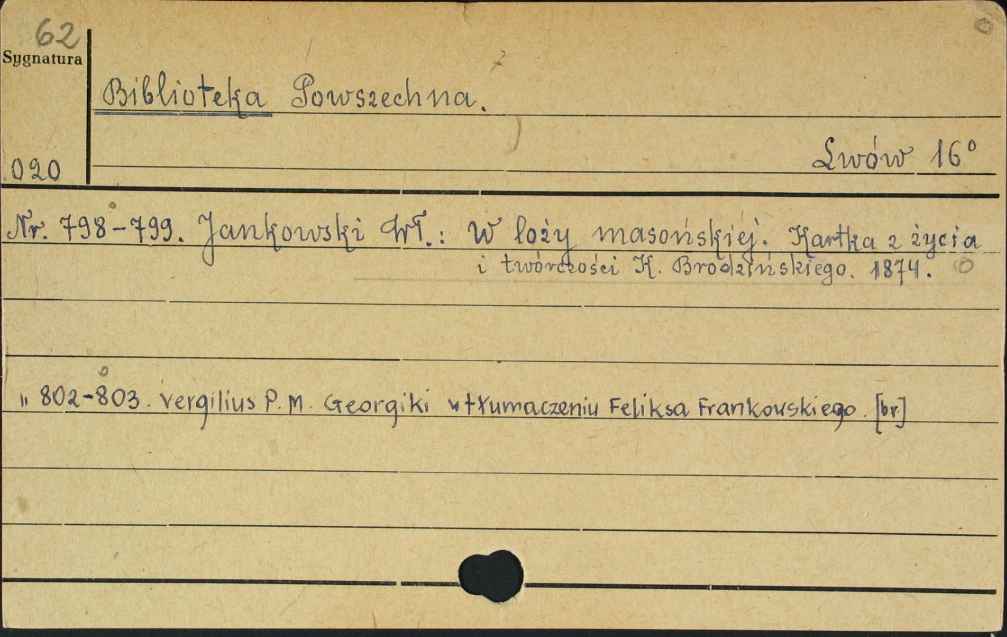 62
Sygnatura
Biblioteka Powszechna.
020
Lwów 16°
Nr. 798-799. Jankowski Wł.: W loży masońskiej. Kartka z życia
i twórczości K. Brodzińskiego. 1874.
" 802-803. Vergilius P. M. Georgiki w tłumaczeniu Feliksa Frankowskiego. [br]